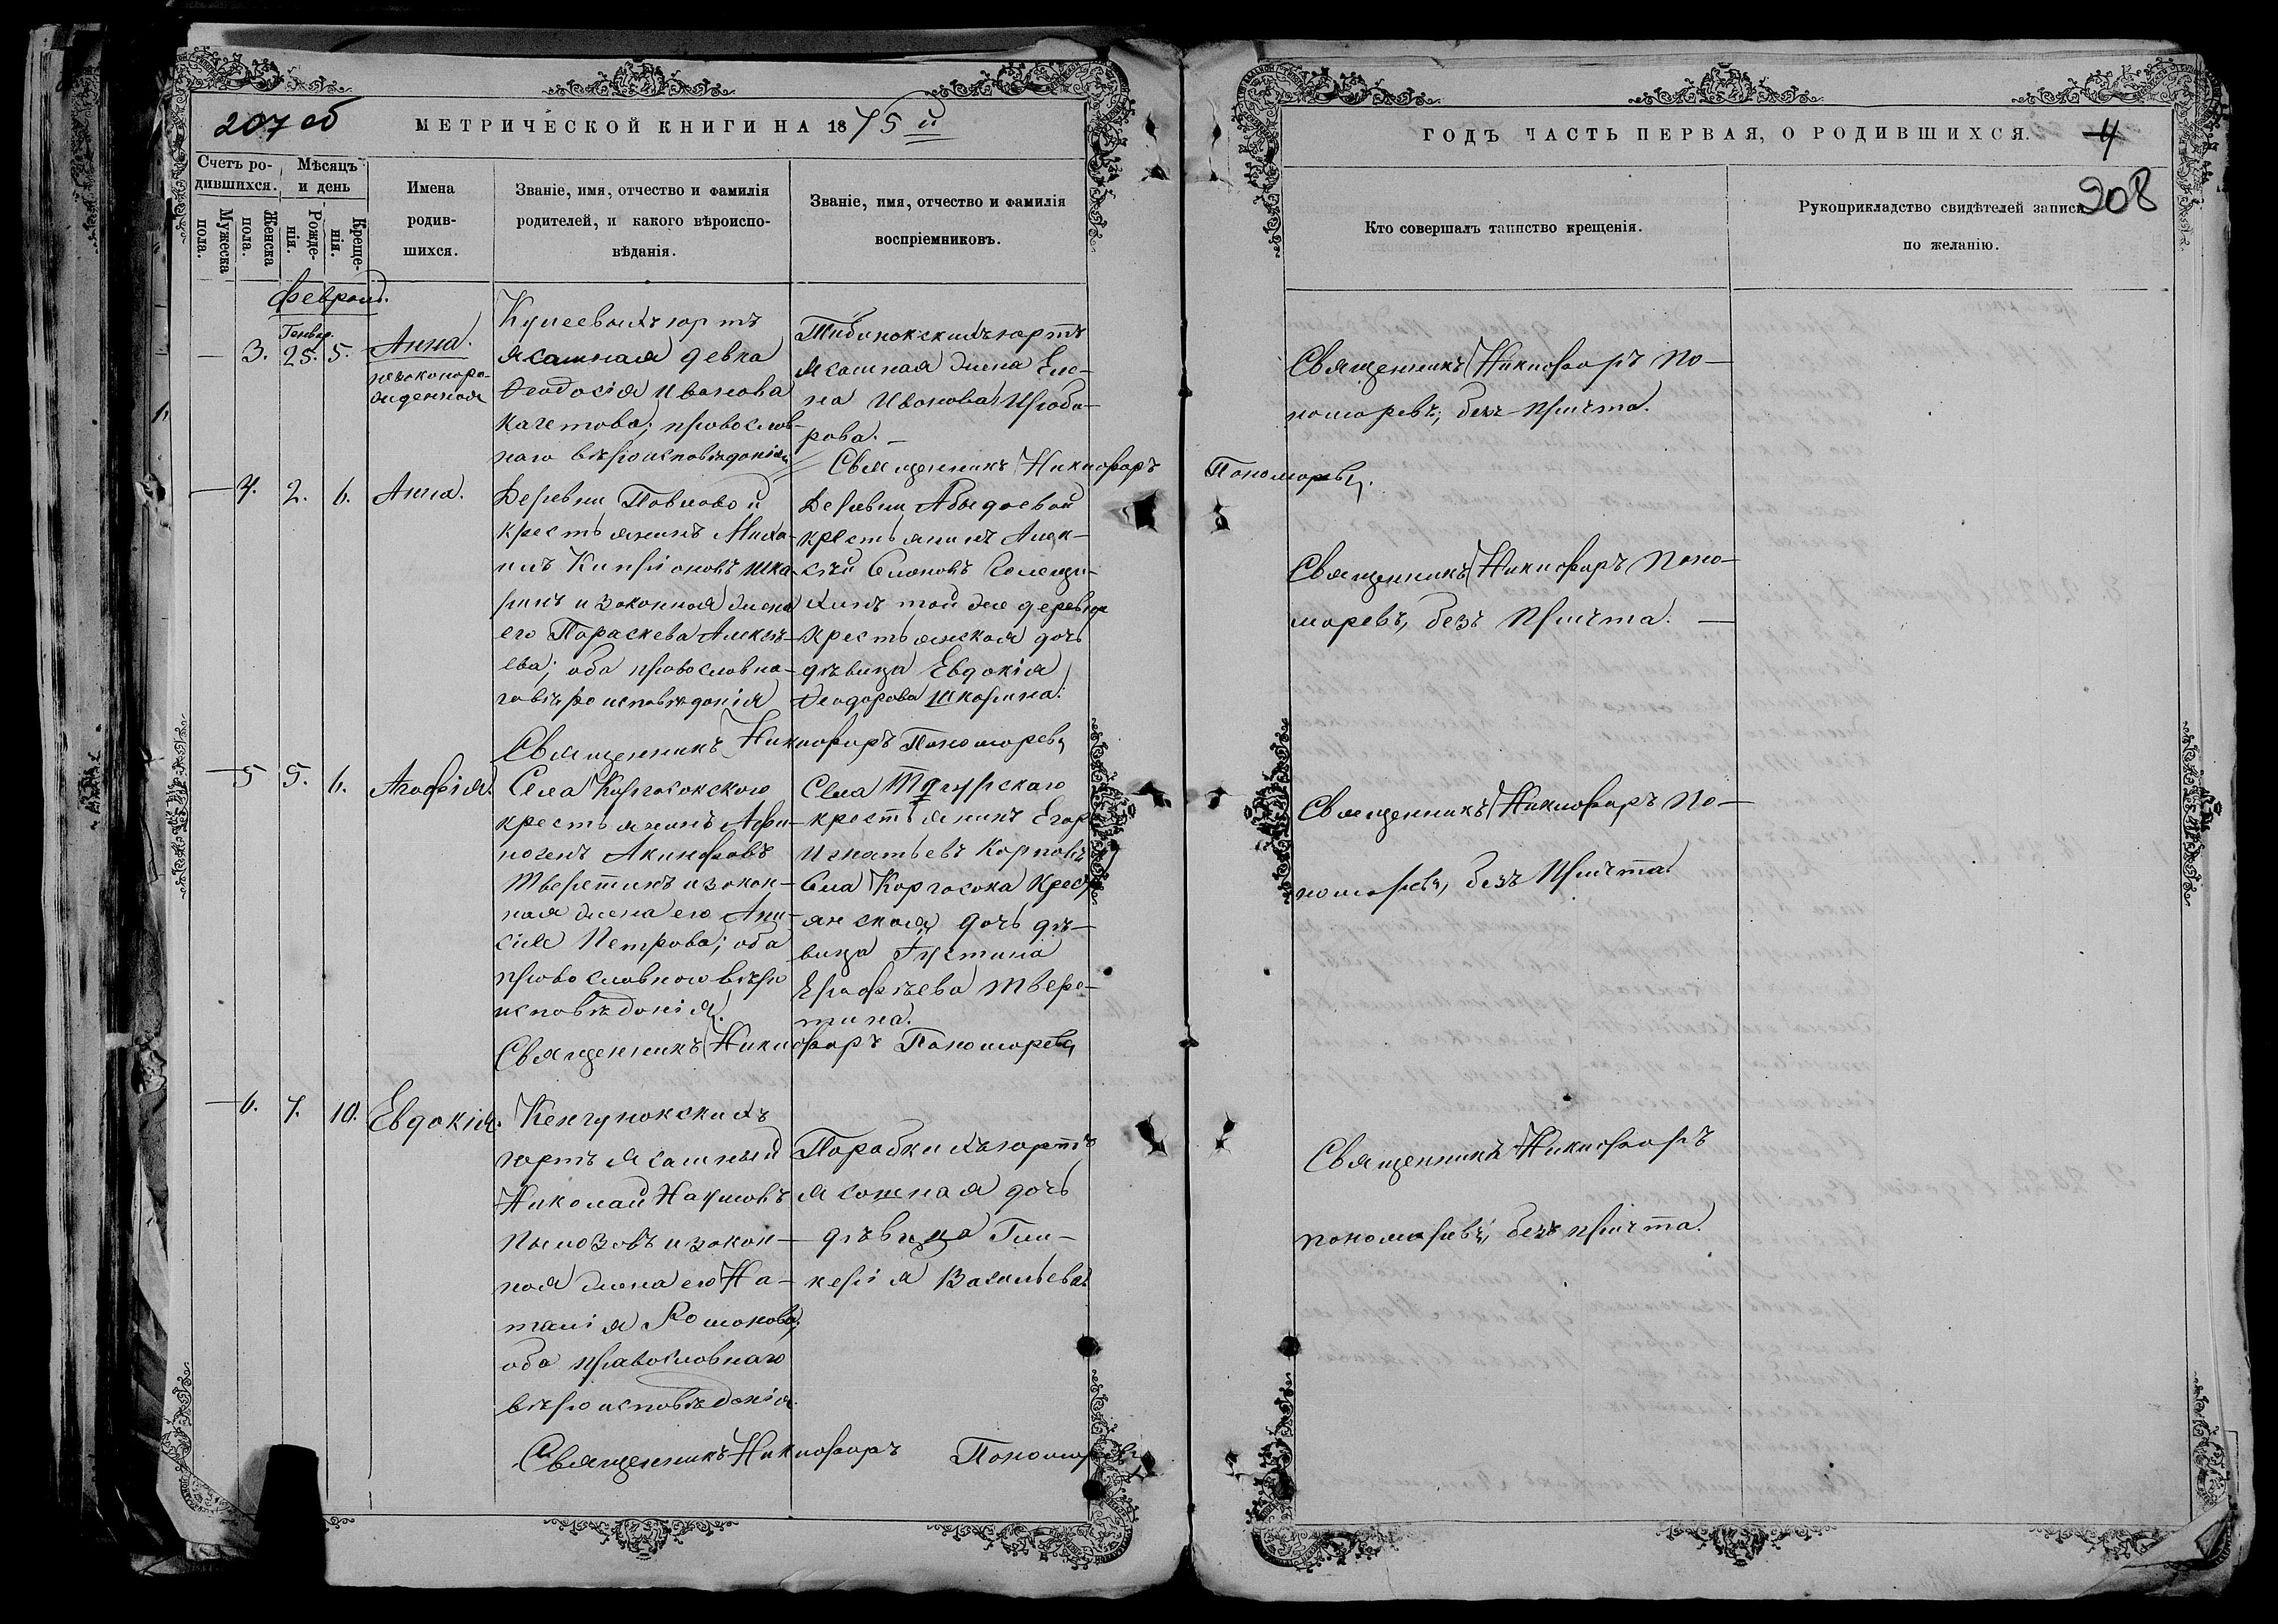 207 об
МЕТРИЧЕСКОЙ КНИГИ НА 1875 й
Счетъ ро-
дившихся.
Мужеска
пола.
Женска
пола.
Мѣсяцъ
и день
Рожде-
нія.
Креще-
нія.
Имена
родив-
шихся.
Званіе, имя, отчество и фамилія
родителей, и какого вѣроиспо-
вѣданія.
Званіе, имя, отчество и фамилія
воспріемниковъ.
Февраль.
— 3.
Генвар.
25. 5.
Анна.
незаконоро-
жденная
юртъ
ясашная девка
Ѳеодосія Иванова
Качетова; православ-
наго вѣроисповѣданія
юртъ
ясашная жена Еле-
на Иванова
рова. —
Священникъ Никифоръ Пономаревъ.
— 4. 2. 6. Анна.
Деревни Павловой
крестьянинъ Миха-
илъ Кипріановъ Шка-
ринъ и законная жена
его Параскева Алексѣ-
ева; оба православна-
го вѣроисповѣданія
Деревни
крестьянинъ Алек-
сѣй Голещи-
хинъ той же деревни
крестьянская дочь
дѣвица Евдокія
Ѳеодорова Шкарина.
Священникъ Никифоръ Пономаревъ
— 5 5. 6. Агафія.
Села Каргасокскаго
крестьянинъ Афи-
ногенъ Акинфовъ
Тверетинъ и закон-
ная жена его Ани-
сія Петрова; оба
православного вѣро
исповѣданія.
Села Тогурскаго
крестьянинъ Егоръ
Игнатьевъ Карповъ
Села Каргасока крест
янская дочь дѣ-
вица Іустина
Ерофѣева Твере-
тина.
Священникъ Никифоръ Пономаревъ
— 6. 7. 10. Евдокія.
юртъ ясашный
Николай Наумовъ
и закон-
ная жена его На-
талія
оба православнаго
вѣроисповѣданія.
юртъ
ясашная дочь
дѣвица Гли-
керія Васильева
Священникъ Никифоръ Пономаревъ
ГОДЪ ЧАСТЬ ПЕРВАЯ, О РОДИВШИХСЯ.
4
208
Кто совершалъ таинство крещенія.
Рукоприкладство свидѣтелей записи
по желанію.
Священникъ Никифоръ По-
номаревъ, безъ причта.
Священникъ Никифоръ Поно-
маревъ, безъ причта. —
Священникъ Никифоръ По-
номаревъ, безъ причта
Священникъ Никифоръ
пономаревъ, безъ причта.